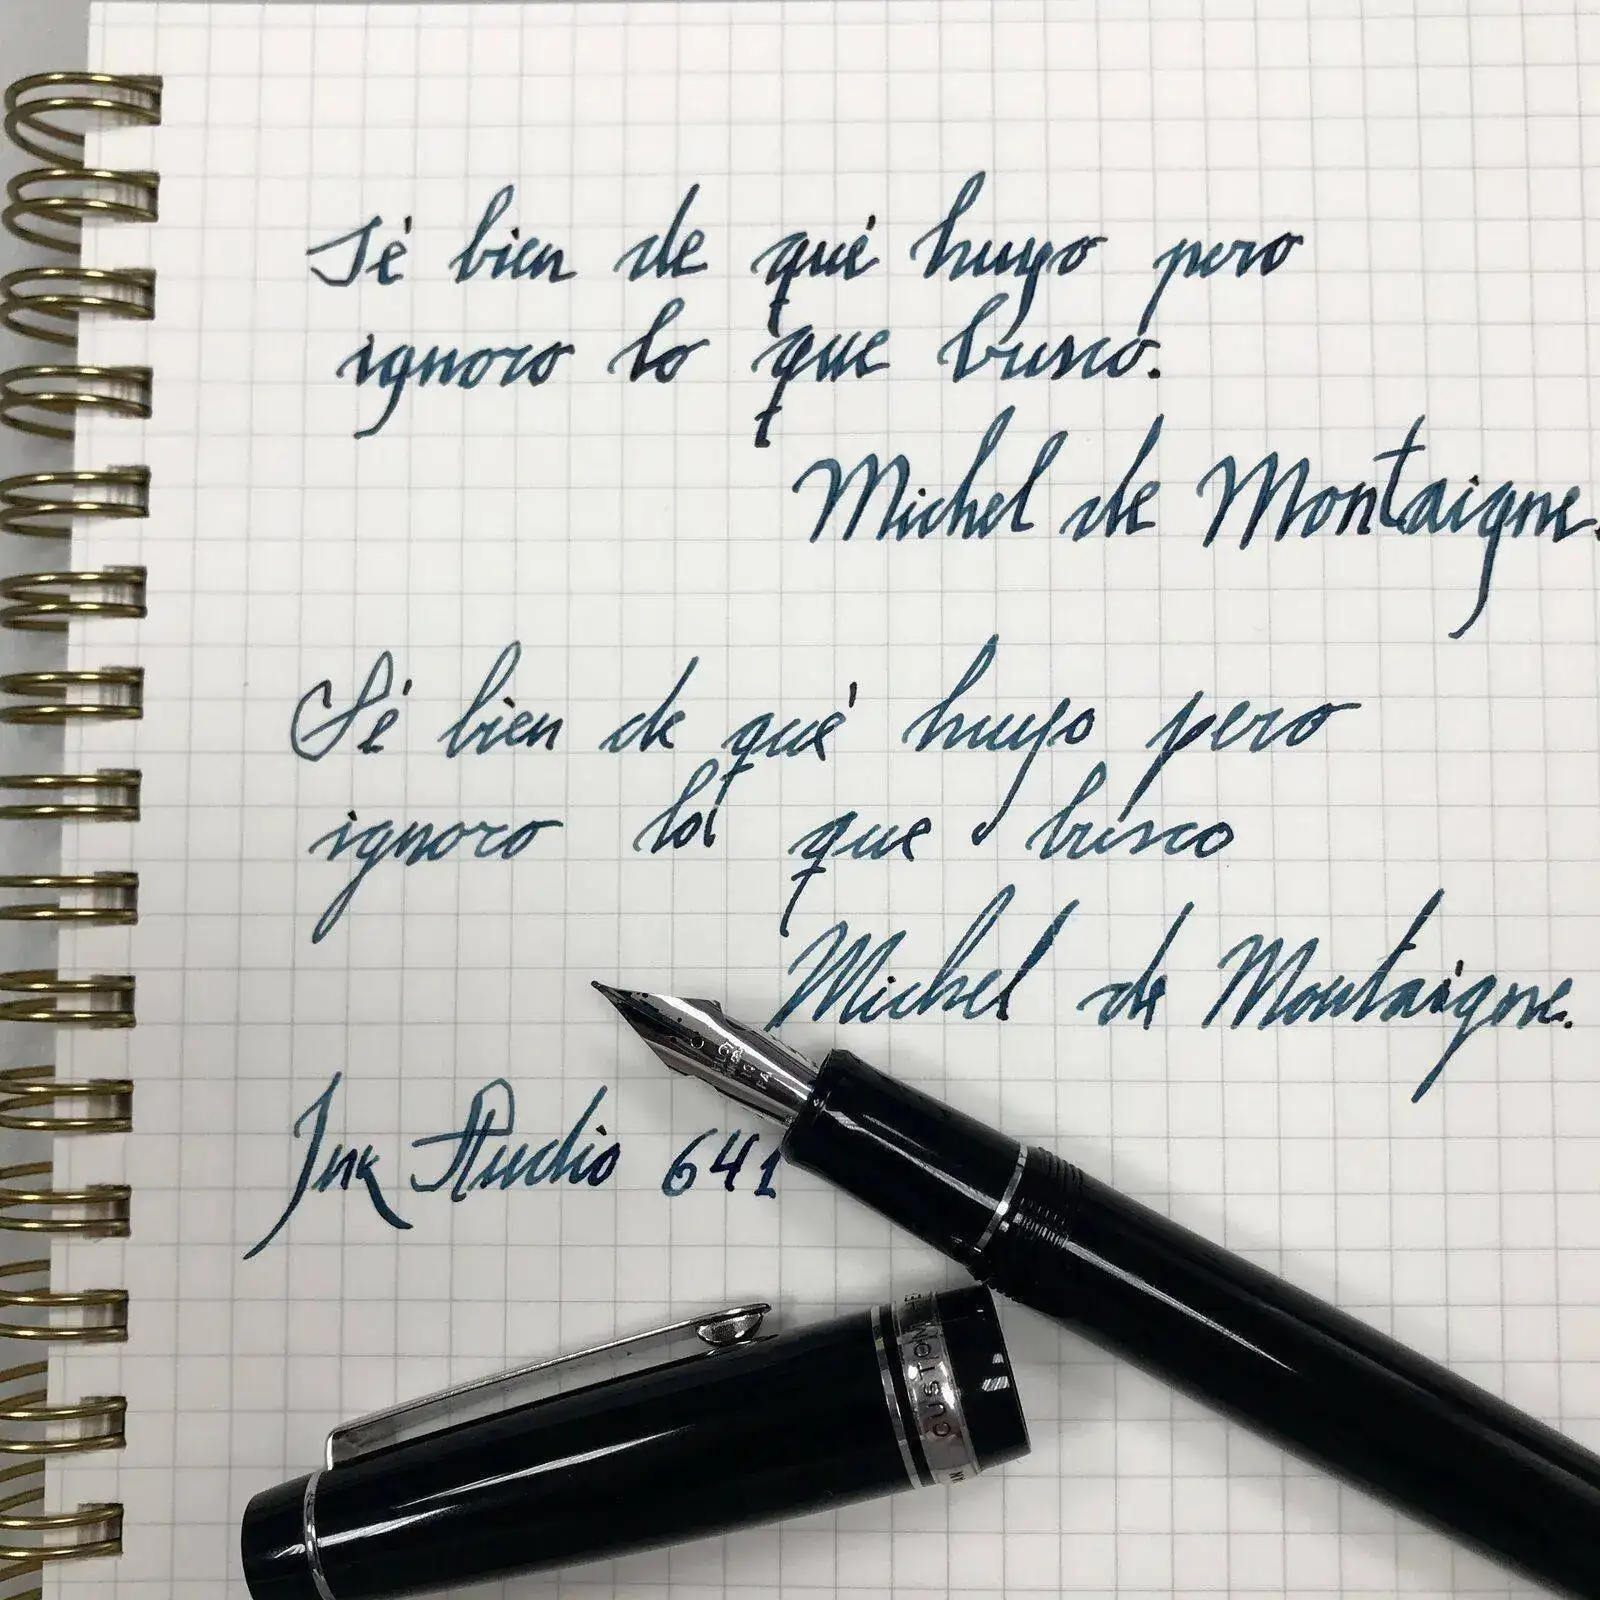 Sé bien de qué huyo pero
ignoro lo que busco.
Michel de Montaigne.
Sé bien de qué huyo pero
ignoro lo que busco
Michel de Montaigne.
Ink Studio 641
CUSTOM HE